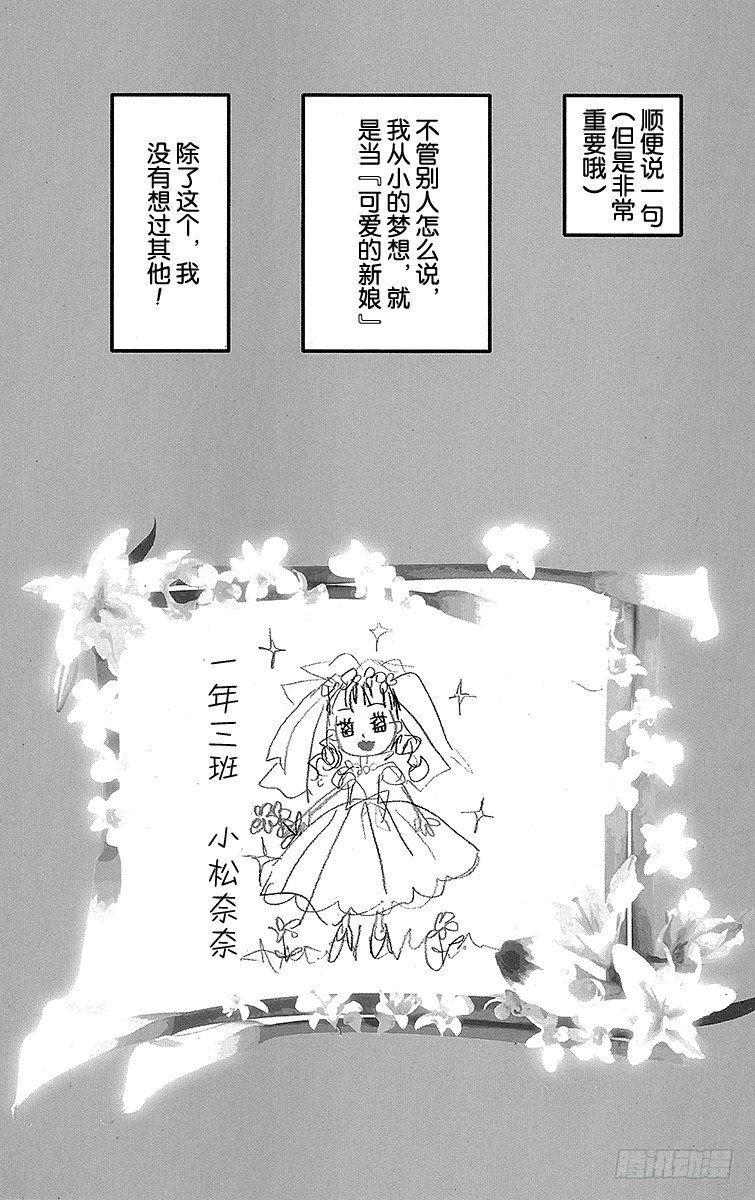 顺便说一句
（但是非常
重要哦）
不管别人怎么说，
我从小的梦想，就
是当『可爱的新娘』
除了这个，我
没有想过其他！
一年三班 小松奈奈
腾讯动漫